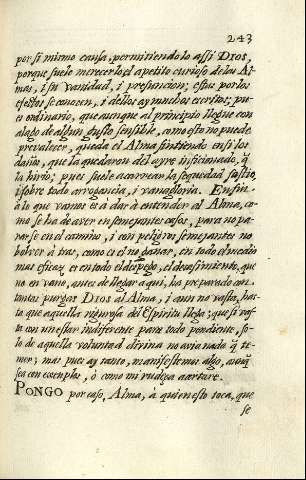 243
por si mismo causa, permitiendolo assi Dios,
porque suele merecerlo el apetito curioso de las Al-
mas, i su vanidad, i presuncion; estas por los
efectos se conocen, i dellos ay muchos escritos; pu-
es ordinario, que aunque al principio llegue con
alago de algun gusto sensible, como esto no puede
prevalecer, queda el Alma sintiendo en si los
daños, que la quedaron del ayre inficionado, q̃
la hirio; pues suele acarrear la sequedad, fastio,
i sobre todo arrogancia, i vanagloria. Enfin
à lo que vamos es à dar à entender al Alma, co-
mo se ha de aver en semejantes casos, para no pa-
rarse en el camino, i con peligros semejantes no
bolver à tras, como es el no ganar, en todo el medio
mas eficaz es en todo el despego, el desasimiento, que
no en vano, antes de llegar aqui, ha preparado con
tantos purgos Dios al Alma, i aun no vasta, has-
ta que aquella rigurosa del Espiritu llega; que si vas-
ta con un estar indiferente para todo pendiente, so-
lo de aquella voluntad divina no avia nada q̃ te-
mer; mas pues ay tanto, manifestemos algo, aunq̃
sea con exemplos, ò como mi rudeza acertare.
PONGO por caso, Alma, à quien esto toca, que
se